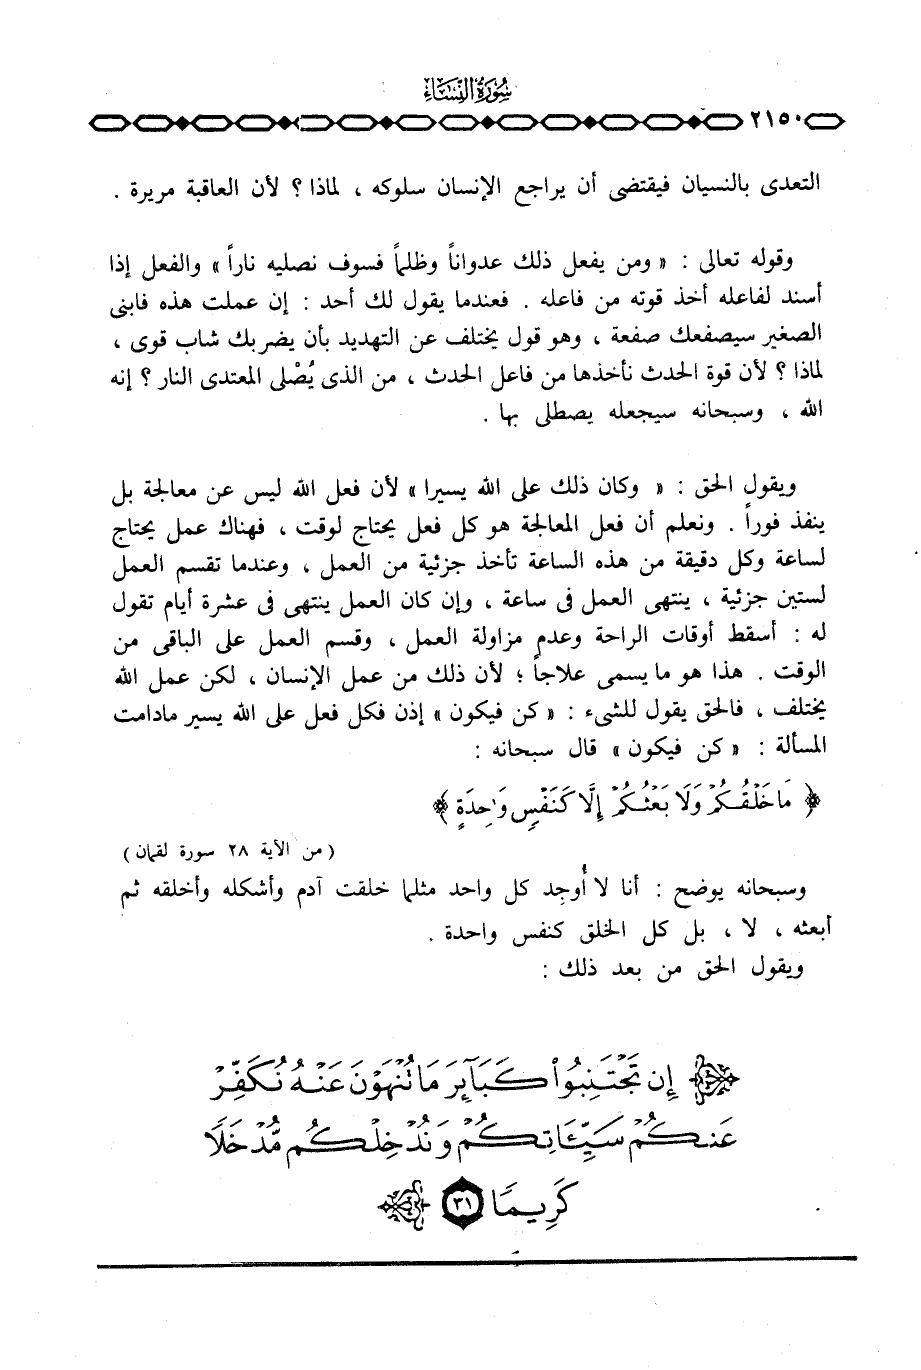 سُورَةُ النِّسَاءِ
٢١٥٠
التعدى بالنسيان فيقتضى أن يراجع الإنسان سلوكه ، لماذا ؟ لأن العاقبة مريرة .
وقوله تعالى : « ومن يفعل ذلك عدواناً وظلماً فسوف نصليه ناراً » والفعل إذا
أسند لفاعله أخذ قوته من فاعله . فعندما يقول لك أحد : إن عملت هذه فابنى
الصغير سيصفعك صفعة ، وهو قول يختلف عن التهديد بأن يضربك شاب قوى ،
لماذا ؟ لأن قوة الحدث نأخذها من فاعل الحدث ، من الذى يُصْلى المعتدى النار ؟ إنه
الله ، وسبحانه سيجعله يصطلى بها .
ويقول الحق : « وكان ذلك على الله يسيرا » لأن فعل الله ليس عن معالجة بل
ينفذ فوراً . ونعلم أن فعل المعالجة هو كل فعل يحتاج لوقت ، فهناك عمل يحتاج
لساعة وكل دقيقة من هذه الساعة تأخذ جزئية من العمل ، وعندما تقسم العمل
لستين جزئية ، ينتهى العمل فى ساعة ، وإن كان العمل ينتهى فى عشرة أيام تقول
له : أسقط أوقات الراحة وعدم مزاولة العمل ، وقسم العمل على الباقى من
الوقت . هذا هو ما يسمى علاجاً ؛ لأن ذلك من عمل الإنسان ، لكن عمل الله
يختلف ، فالحق يقول للشىء : « كن فيكون » إذن فكل فعل على الله يسير مادامت
المسألة : « كن فيكون » قال سبحانه :
﴿ مَا خَلْقُكُمْ وَلَا بَعْثُكُمْ إِلَّا كَنَفْسٍ وَاحِدَةٍ ﴾
( من الآية ٢٨ سورة لقمان )
وسبحانه يوضح : أنا لا أُوجد كل واحد مثلما خلقت آدم وأشكله وأخلقه ثم
أبعثه ، لا ، بل كل الخلق كنفس واحدة .
ويقول الحق من بعد ذلك :
﴿ إِن تَجْتَنِبُوا۟ كَبَآئِرَ مَا تُنْهَوْنَ عَنْهُ نُكَفِّرْ
عَنكُمْ سَيِّئَاتِكُمْ وَنُدْخِلْكُم مُّدْخَلًا
كَرِيمًا ٣١ ﴾